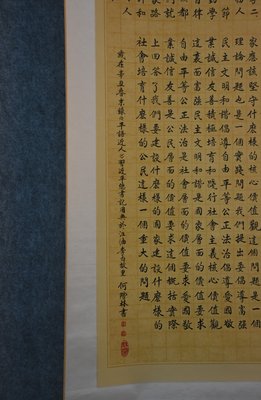 家應該堅守什麼樣的核心價值觀這個問題
理論問題也是一個實踐問題我們提出要倡導富強
民主文明和諧倡導自由平等公正法治倡導愛國敬
業誠信友善積極培育和踐行社會主義核心價值觀
這裏面富強民主文明和諧是國家層面的價值要求
自由平等公正法治是社會層面的價值要求愛國敬
業誠信友善是公民層面的價值要求這個概括實際
上回答了我們要建設什麼樣的國家建設什麼樣的
社會培育什麼樣的公民這樣一個重大的問題
歲在辛丑春東錄平語近人習近平總書記用典於江油李白故里 何際林書